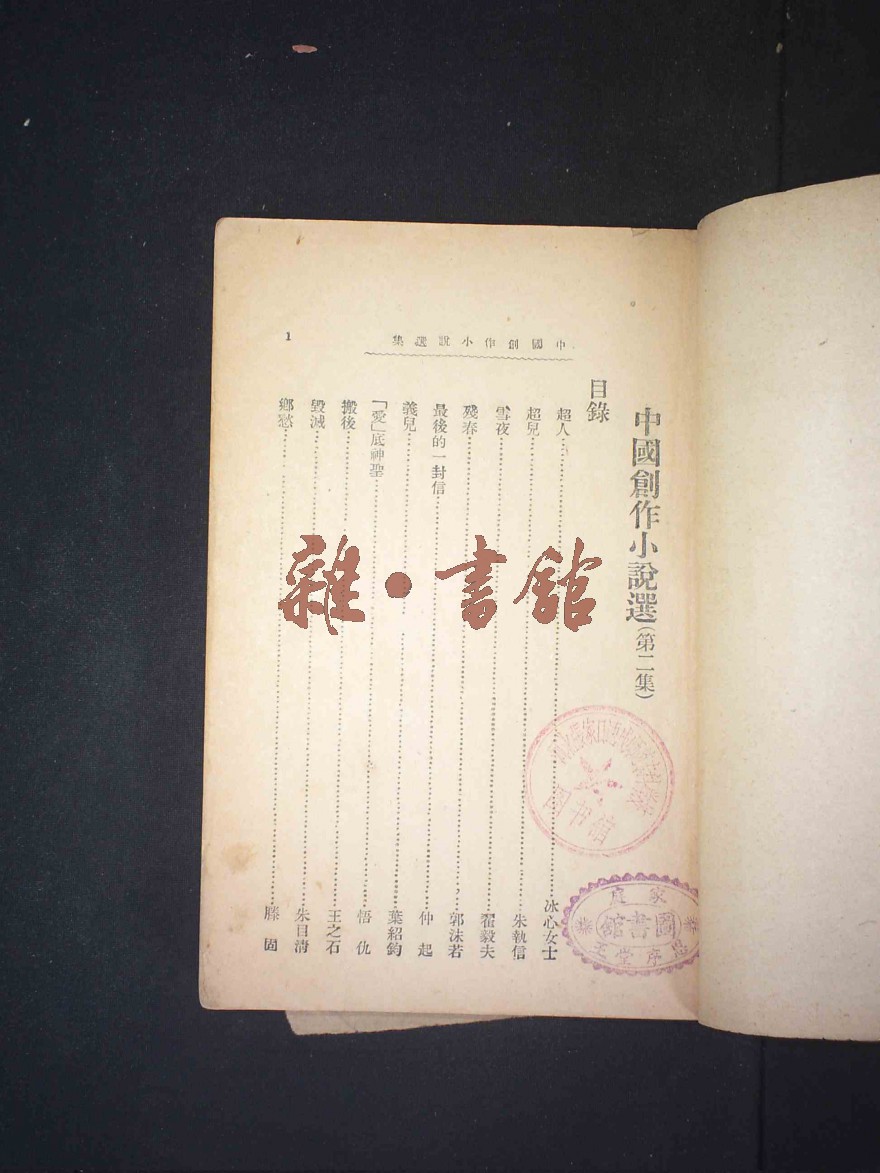 中國創作小說選(第二集)
目錄
超人 冰心女士
超兒 朱執信
雪夜 翟毅夫
殘春 郭沫若
最後的一封信 仲起
義兒 葉紹鈞
「愛」底神聖 悟仇
搬後 王之石
毀滅 朱自清
鄉愁 滕固
中國創作小說選集
1
雜·書館
家庭
圖書館
序堂王